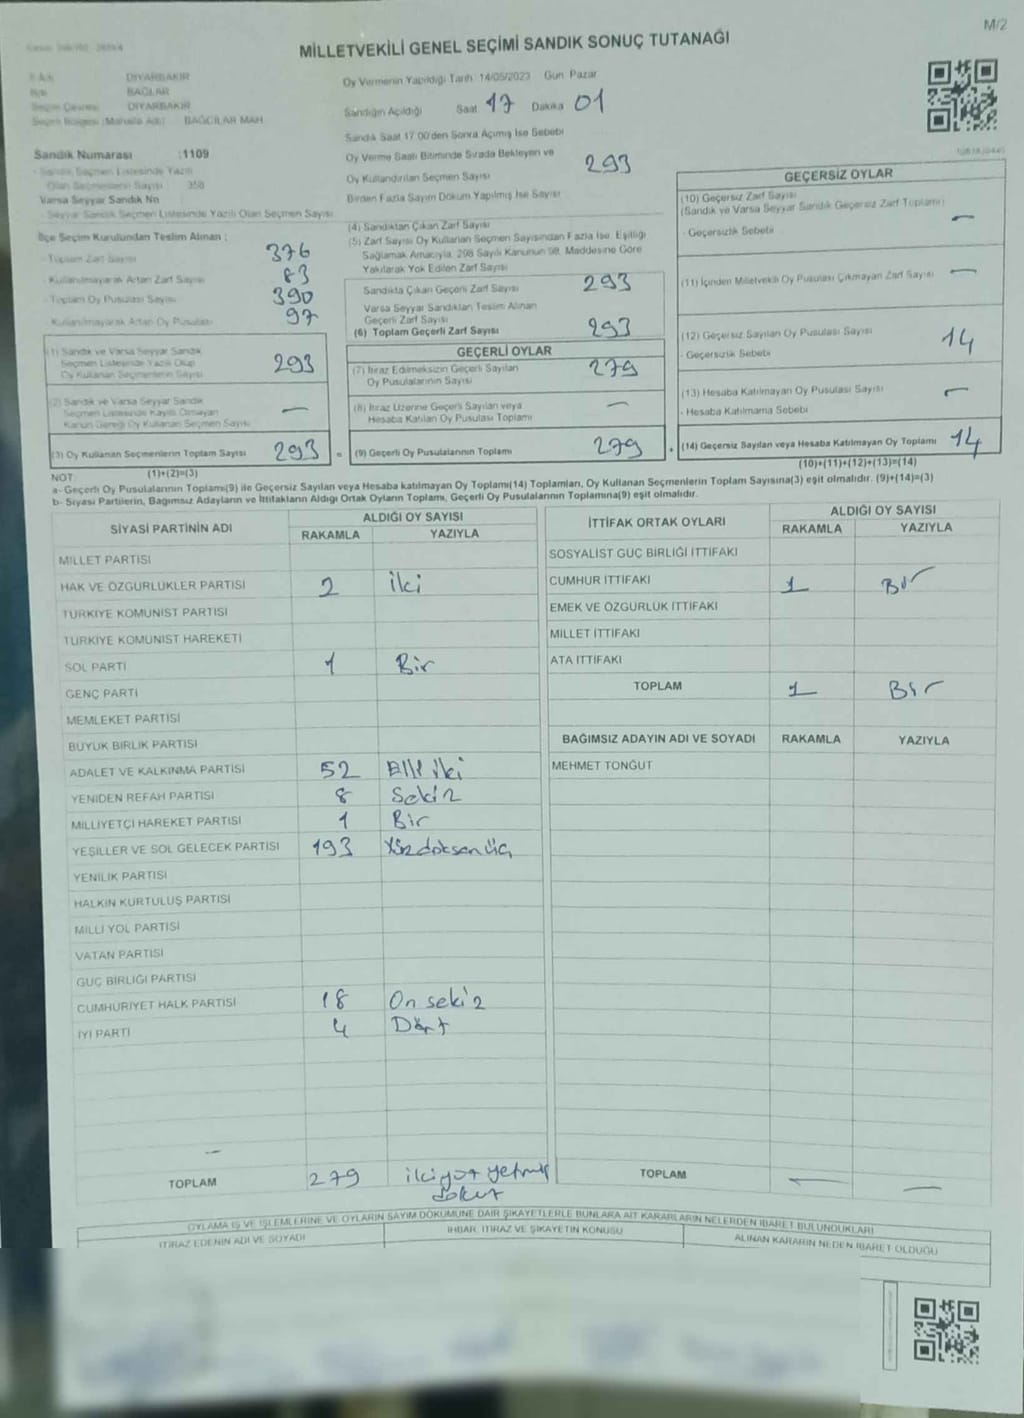 M/2
MİLLETVEKİLİ GENEL SEÇİMİ SANDIK SONUÇ TUTANAĞI
DİYARBAKIR
BAĞLAR
DİYARBAKIR
BAĞCILAR MAH.
Sandık Numarası :1109
- Sandık Seçmen Listesinde Yazılı
Olan Seçmenlerin Sayısı 358
Varsa Seyyar Sandık No
- Seyyar Sandık Seçmen Listesinde Yazılı Olan Seçmen Sayısı
İlçe Seçim Kurulundan Teslim Alınan :
- Toplam Zarf Sayısı 376
- Kullanılmayarak Artan Zarf Sayısı 83
- Toplam Oy Pusulası Sayısı 390
- Kullanılmayarak Artan Oy Pusulası 97
(1) Sandık ve Varsa Seyyar Sandık
Seçmen Listesinde Yazılı Olup
Oy Kullanan Seçmenlerin Sayısı 293
(2) Sandık ve Varsa Seyyar Sandık
Seçmen Listesinde Kayıtlı Olmayan
Kanun Gereği Oy Kullanan Seçmen Sayısı —
(3) Oy Kullanan Seçmenlerin Toplam Sayısı 293
(1)+(2)=(3)
Oy Vermenin Yapıldığı Tarih 14/05/2023 Gün Pazar
Sandığın Açıldığı Saat 17 Dakika 01
Sandık Saat 17:00'den Sonra Açılmış İse Sebebi
Oy Verme Saati Bitiminde Sırada Bekleyen ve
Oy Kullandırılan Seçmen Sayısı 293
Birden Fazla Sayım Döküm Yapılmış İse Sayısı
(4) Sandıktan Çıkan Zarf Sayısı
(5) Zarf Sayısı Oy Kullanan Seçmen Sayısından Fazla İse, Eşitliği
Sağlamak Amacıyla, 298 Sayılı Kanunun 98. Maddesine Göre
Yakılarak Yok Edilen Zarf Sayısı
Sandıkta Çıkan Geçerli Zarf Sayısı 293
Varsa Seyyar Sandıktan Teslim Alınan
Geçerli Zarf Sayısı
(6) Toplam Geçerli Zarf Sayısı 293
GEÇERLİ OYLAR
(7) İtiraz Edilmeksizin Geçerli Sayılan
Oy Pusulalarının Sayısı 279
(8) İtiraz Üzerine Geçerli Sayılan veya
Hesaba Katılan Oy Pusulası Toplamı —
= (9) Geçerli Oy Pusulalarının Toplamı 279
GEÇERSİZ OYLAR
(10) Geçersiz Zarf Sayısı
(Sandık ve Varsa Seyyar Sandık Geçersiz Zarf Toplamı) —
- Geçersizlik Sebebi
(11) İçinden Milletvekili Oy Pusulası Çıkmayan Zarf Sayısı —
(12) Geçersiz Sayılan Oy Pusulası Sayısı 14
- Geçersizlik Sebebi
(13) Hesaba Katılmayan Oy Pusulası Sayısı —
- Hesaba Katılmama Sebebi
+ (14) Geçersiz Sayılan veya Hesaba Katılmayan Oy Toplamı 14
(10)+(11)+(12)+(13)=(14)
NOT:
a- Geçerli Oy Pusulalarının Toplamı(9) ile Geçersiz Sayılan veya Hesaba katılmayan Oy Toplamı(14) Toplamları, Oy Kullanan Seçmenlerin Toplam Sayısına(3) eşit olmalıdır. (9)+(14)=(3)
b- Siyasi Partilerin, Bağımsız Adayların ve İttifakların Aldığı Ortak Oyların Toplamı, Geçerli Oy Pusulalarının Toplamına(9) eşit olmalıdır.
SİYASİ PARTİNİN ADI ALDIĞI OY SAYISI
RAKAMLA YAZIYLA
MİLLET PARTİSİ
HAK VE ÖZGÜRLÜKLER PARTİSİ 2 İki
TÜRKİYE KOMÜNİST PARTİSİ
TÜRKİYE KOMÜNİST HAREKETİ
SOL PARTİ 1 Bir
GENÇ PARTİ
MEMLEKET PARTİSİ
BÜYÜK BİRLİK PARTİSİ
ADALET VE KALKINMA PARTİSİ 52 Elli iki
YENİDEN REFAH PARTİSİ 8 Sekiz
MİLLİYETÇİ HAREKET PARTİSİ 1 Bir
YEŞİLLER VE SOL GELECEK PARTİSİ 193 Yüzdoksanüç
YENİLİK PARTİSİ
HALKIN KURTULUŞ PARTİSİ
MİLLİ YOL PARTİSİ
VATAN PARTİSİ
GÜÇ BİRLİĞİ PARTİSİ
CUMHURİYET HALK PARTİSİ 18 On sekiz
İYİ PARTİ 4 Dört
—
TOPLAM 279 ikiyüz yetmiş
dokuz
İTTİFAK ORTAK OYLARI ALDIĞI OY SAYISI
RAKAMLA YAZIYLA
SOSYALİST GÜÇ BİRLİĞİ İTTİFAKI
CUMHUR İTTİFAKI 1 Bir
EMEK VE ÖZGÜRLÜK İTTİFAKI
MİLLET İTTİFAKI
ATA İTTİFAKI
TOPLAM 1 Bir
BAĞIMSIZ ADAYIN ADI VE SOYADI RAKAMLA YAZIYLA
MEHMET TONĞUT
TOPLAM — —
OYLAMA İŞ VE İŞLEMLERİNE VE OYLARIN SAYIM DÖKÜMÜNE DAİR ŞİKAYETLERLE BUNLARA AİT KARARLARIN NELERDEN İBARET BULUNDUKLARI
İTİRAZ EDENİN ADI VE SOYADI İHBAR, İTİRAZ VE ŞİKAYETİN KONUSU ALINAN KARARIN NEDEN İBARET OLDUĞU